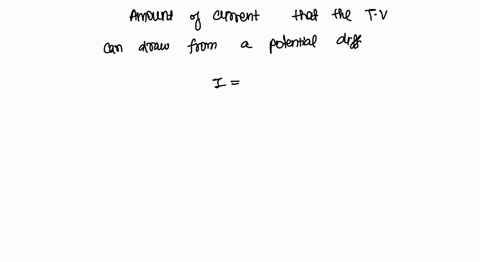 Amount of current that the T.V
can draw from a potential diff.
I =